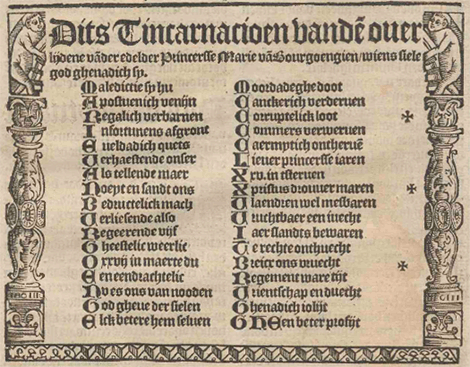 Dits Tincarnacioen vandē ouer
lijdene vāder edelder Princersse Marie vā Bourgoengien/wiens siele
god ghenadich sy.
Maledictie sy hu Moordadeghe doot
Apostuenich venijn Canckerich verderuen
Regalich verbarnen Corruptelich loot ✠
Infortunens afgront Commers verweruen
Eueldadich quets Caermptich ontheruē
Verhaestende onser Liener princersse iaren
Als tellende maer Xxv. in tsteruen
Noeyt en sandt ons Xpristus drouuer maren ✠
Bedructelick mach Vlaendren wel mesbaren
Verliesende also Vruchtbaer een iuecht
Regeerende vijf Iaer slandts bewaren
Gheestelic weerlic Te rechte onthuecht
Oxxvij in maerte du Breicx ons vruecht ✠
Een eendrachtelic Regement ware tijt
Nv es ons van nooden Vrientschap en duecht
God gheue der sielen Ghenadich iolijt
Elck betere hem seluen GHEen beter profijt